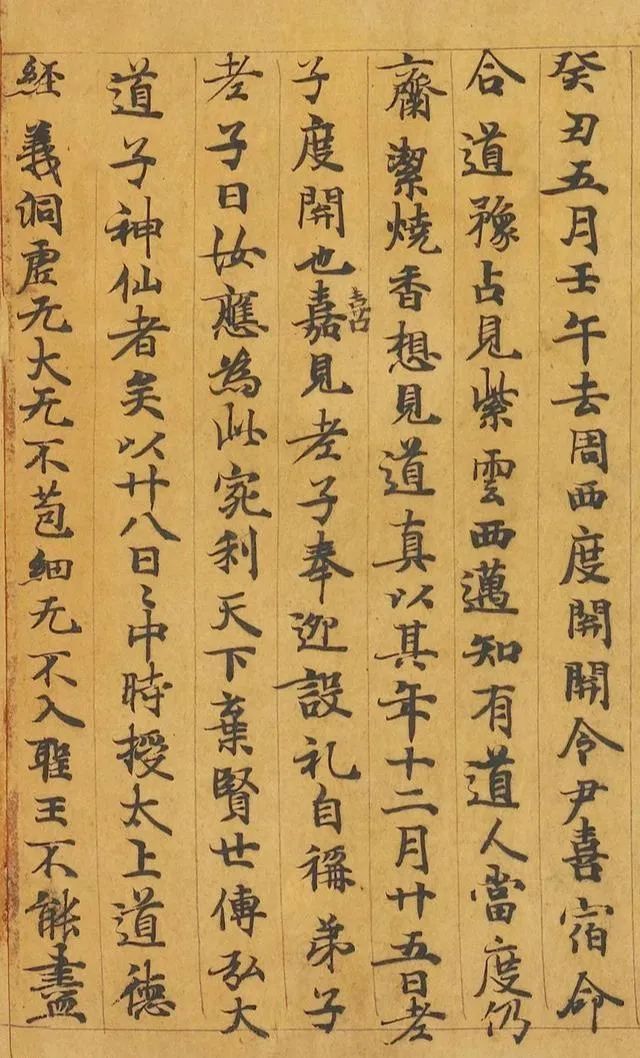 癸丑五月壬午去周西度關關令尹喜宿命
合道豫占見紫雲西邁知有道人當度仍
齋潔燒香想見道真以其年十二月廿五日老
子度開也嘉喜見老子奉迎設礼自稱弟子
老子曰汝應為此宛利天下棄賢世傳弘大
道子神仙者矣以廿八日〻中時授太上道徳
經義洞虛无大无不苞細无不入聖王不能盡